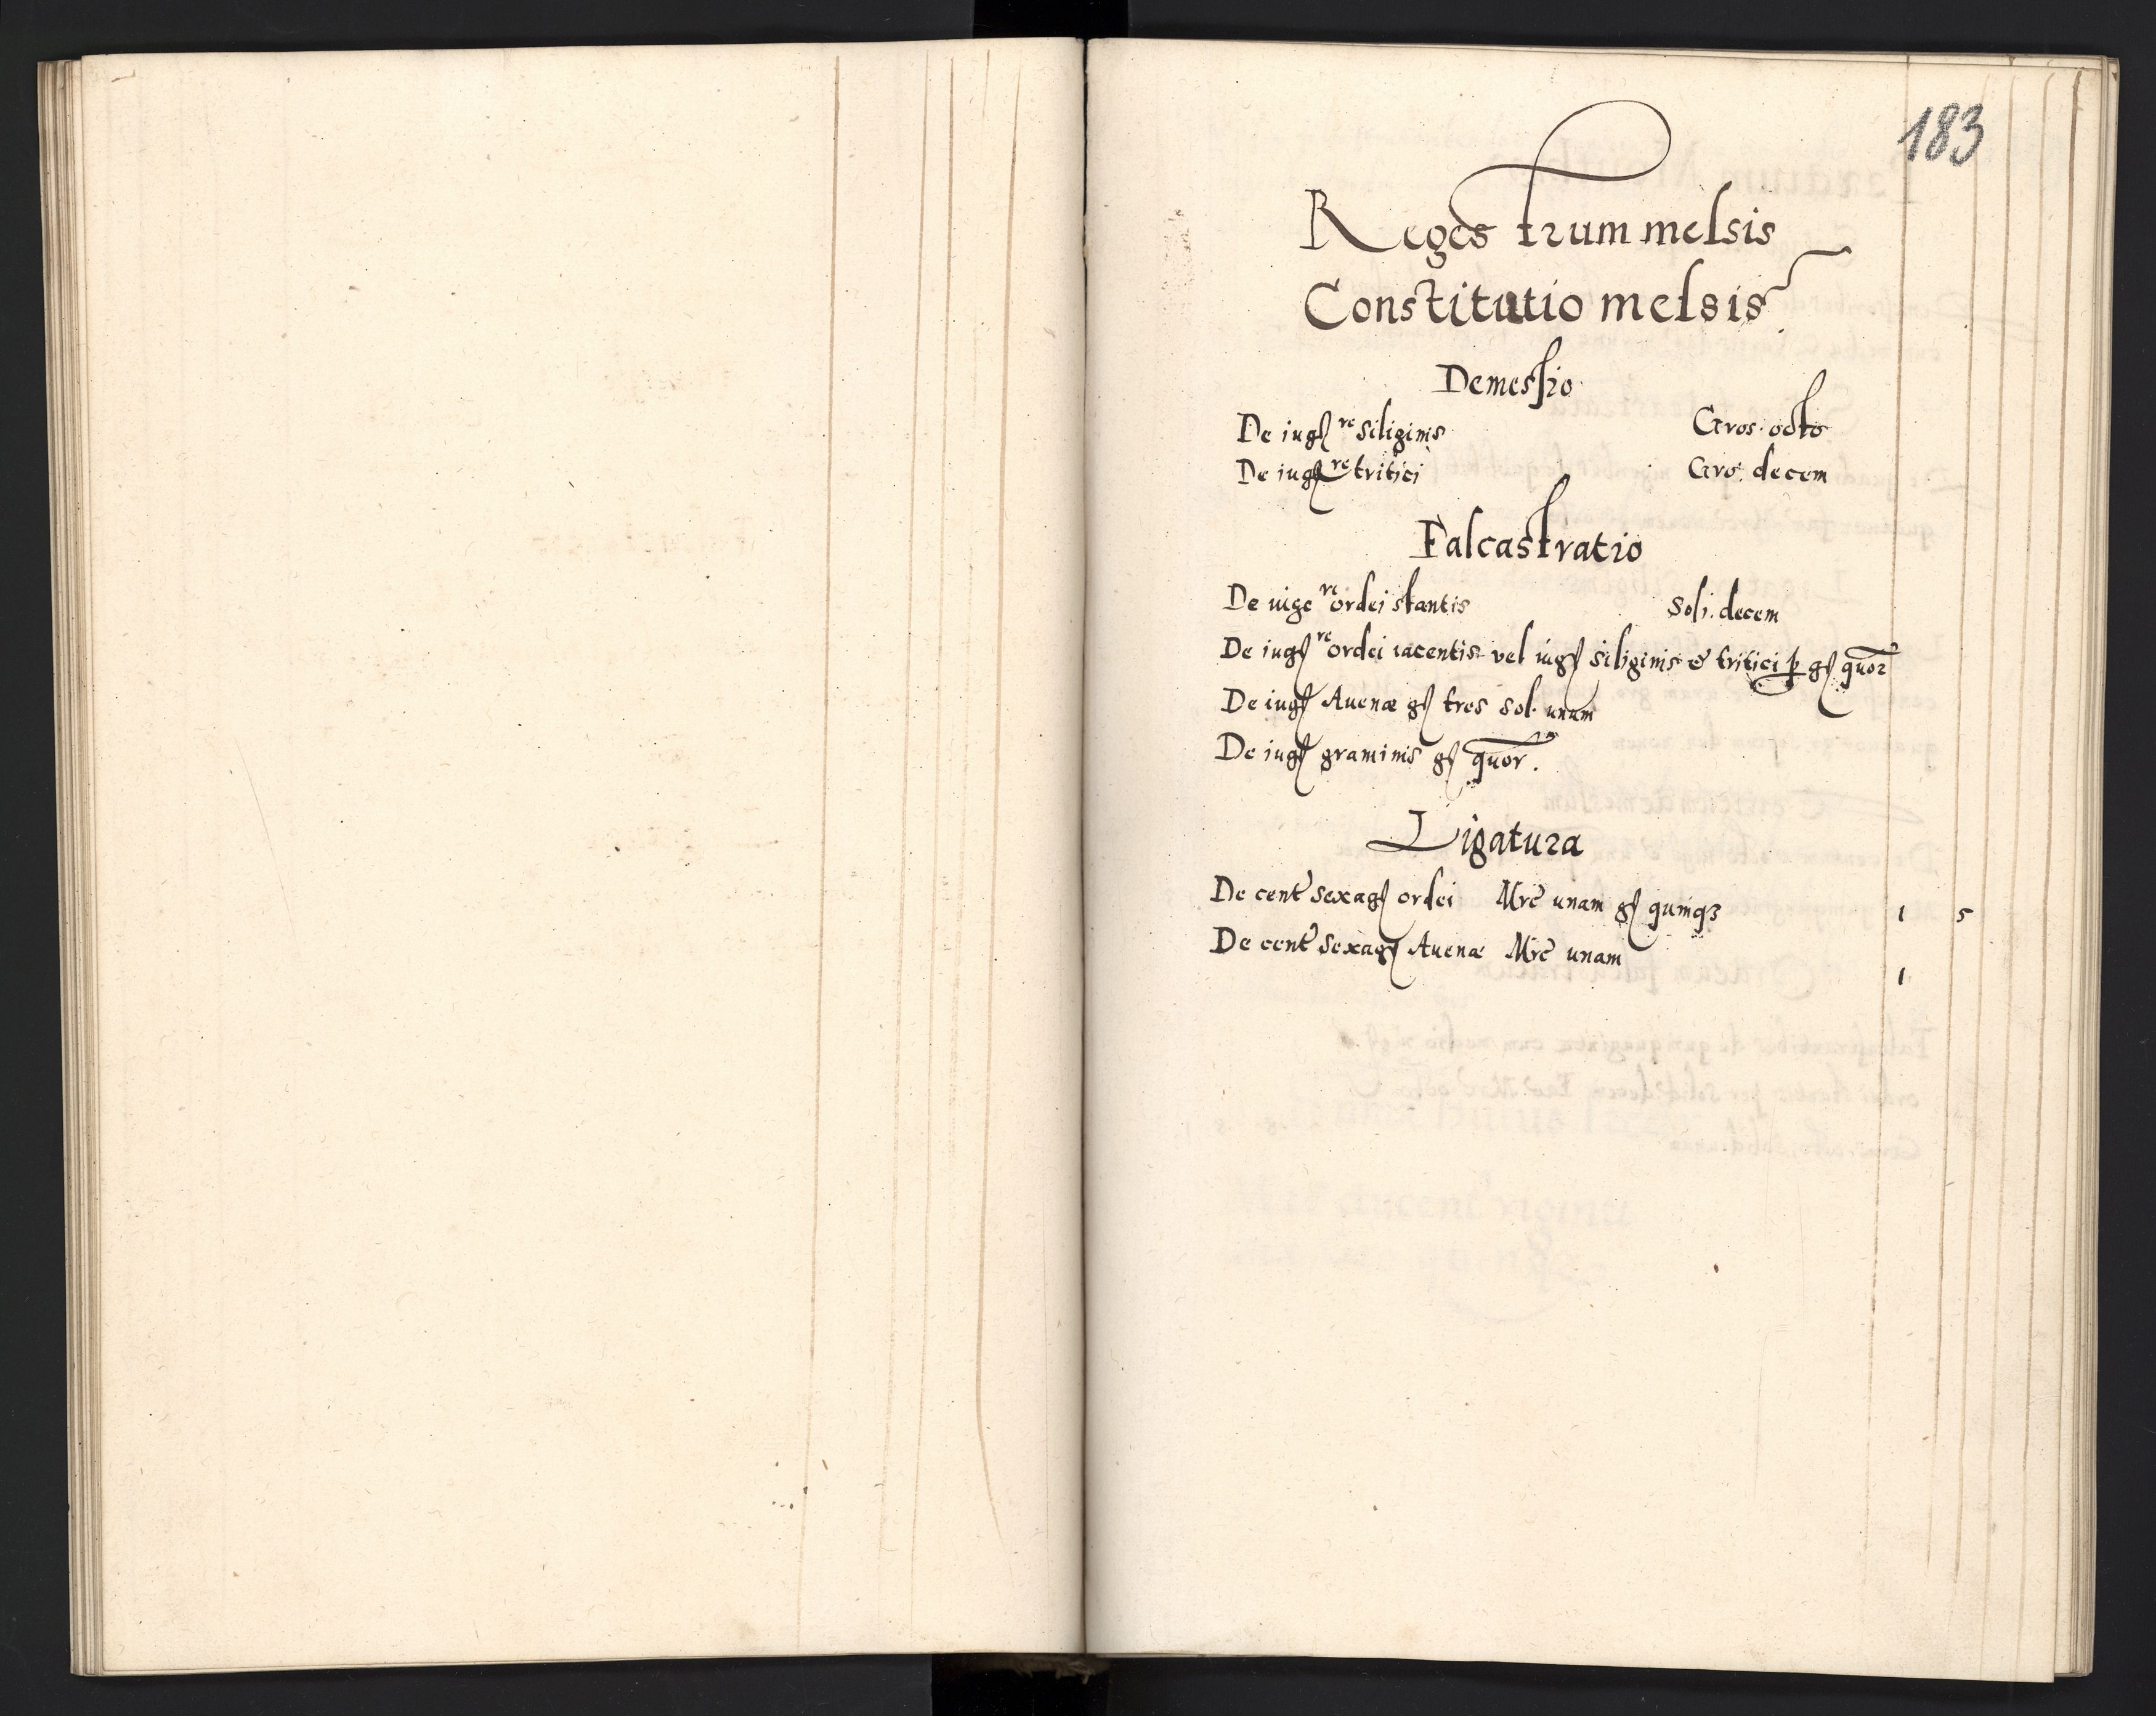 183
Regestrum messis
Constitutio messis
Demessio
De iugere siliginis Gros. octo
De iugere tritici Gro. decem
Falcastratio
De iugere ordei stantis Soli. decem
De iugere ordei iacentis vel iug siliginis & tritici p gs quor
De iug Auenæ gs tres sol. unum
De iug graminis gs quor.
Ligatura
De cent sexag ordei Mrc unam gs quinqȝ 1 5
De cent sexag Auenæ Mrc unam
1